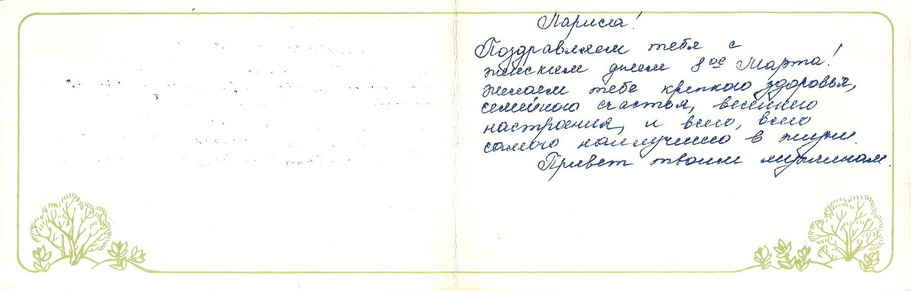 Лариса!
Поздравляем тебя с
женским днем 8ое Марта!
Желаем тебе крепкого здоровья,
семейного счастья, весеннего
настроения, и всего, всего
самого наилучшего в жизни.
Привет твоим мужчинам.